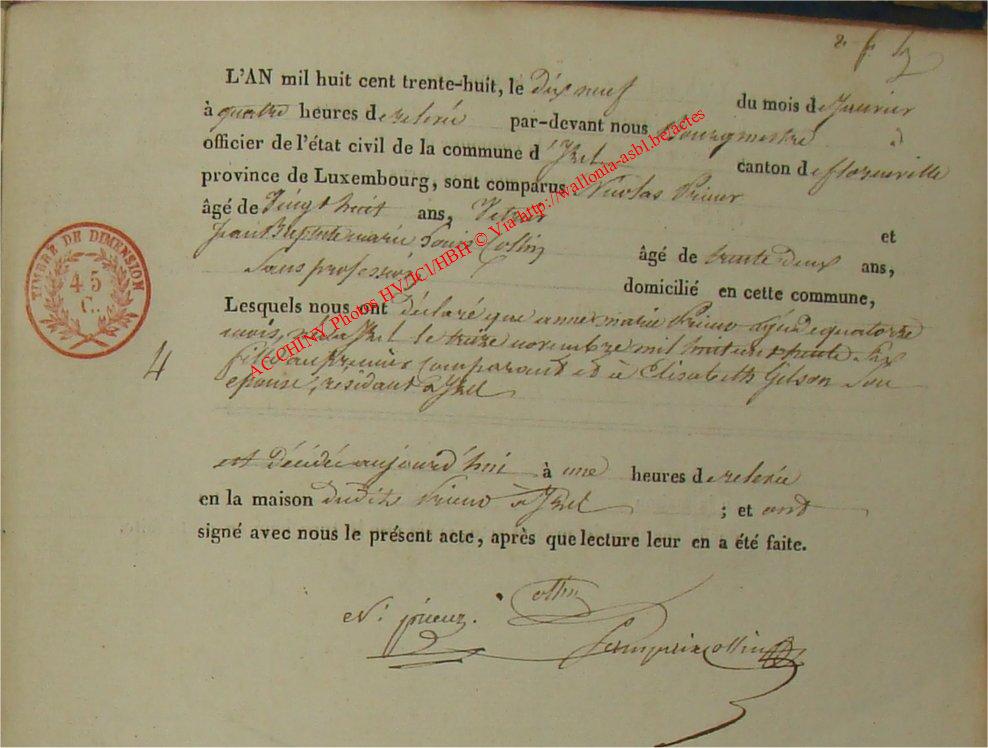 2 f. b
L'AN mil huit cent trente-huit, le dix neuf du mois de Janvier
à quatre heures de relevée par-devant nous Bourgmestre
officier de l'état civil de la commune d'Izel canton de florenville
province de Luxembourg, sont comparus Nicolas
âgé de vingt huit ans, et
jean Baptiste marie Louis Collin âgé de trente deux ans,
Sans profession domicilié en cette commune,
Lesquels nous ont déclaré que anne marie agée de quatorze
mois, née a Izel le treize novembre mil huit cent trente six
fille au premier comparant et a Elisabeth Gilson son
epouse, résidant a Izel
4
est décédée aujourd'hui à une heures de relevée
en la maison dudit a Izel ; et ont
signé avec nous le présent acte, après que lecture leur en a été faite.
N. Collin
Collin
TIMBRE DE DIMENSION
45
C.
ACCHINY Photos HVDCI/HBH © Via http://wallonia-asbl.be/actes